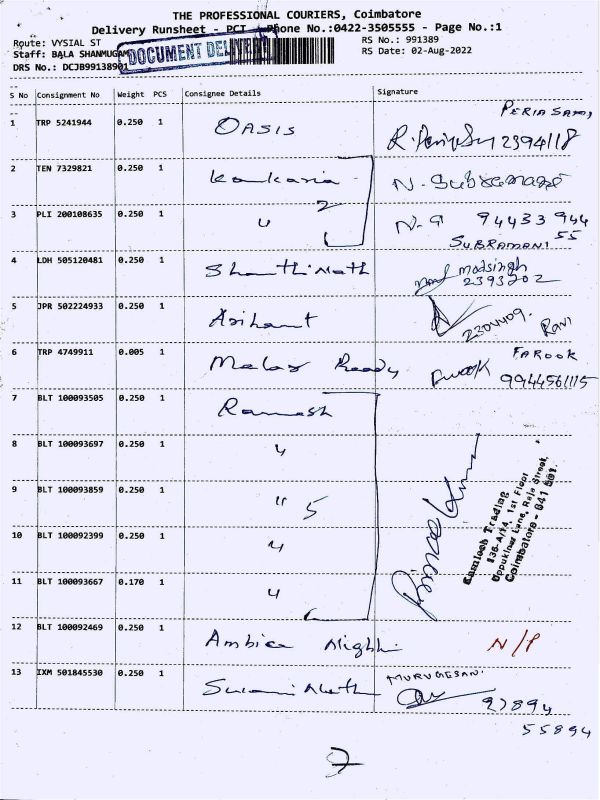 THE PROFESSIONAL COURIERS, Coimbatore
Delivery Runsheet - PCT - Phone No.:0422-3505555 - Page No.:1
Route: VYSIAL ST
RS No.: 991389
Staff: BALA SHANMUGAM
RS Date: 02-Aug-2022
DRS No.: DCJB99138901
DOCUMENT DELIVERY
S No Consignment No Weight PCS Consignee Details Signature
1 TRP 5241944 0.250 1 OASIS PERIASAMY
2394118
2 TEN 7329821 0.250 1 Kankaria N. Subramani
3 PLI 200108635 0.250 1 " 2 94433 944
55
SUBRAMANI
4 LDH 505120481 0.250 1 Shanthi Nath madsingh
2393202
5 JPR 502224933 0.250 1 Arihant 2304409. Ravi
6 TRP 4749911 0.005 1 Malar Ready FAROOK
Farook 9944561115
7 BLT 100093505 0.250 1 Ramesh
8 BLT 100093697 0.250 1 "
9 BLT 100093859 0.250 1 " 5
10 BLT 100092399 0.250 1 "
11 BLT 100093667 0.170 1 "
Kamlesh Trading
136-A/14, 1st Floor
Uppukinar Lane, Raja Street,
Coimbatore - 641 001.
12 BLT 100092469 0.250 1 Ambica N/P
13 IXM 501845530 0.250 1 Swami Nath MURUGESAN.
97894
55894